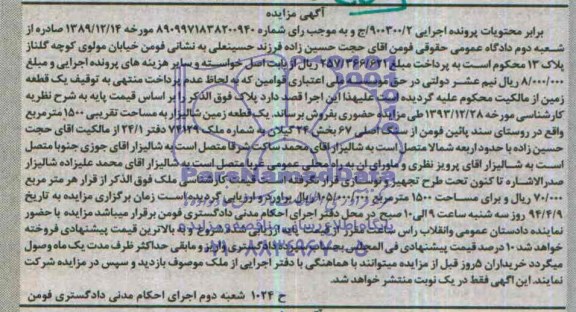 آگهی مزایده
برابر محتویات پرونده اجرایی ۹۰۰۳۰۰/۲/ج و به موجب رای شماره ۸۹۰۹۹۷۱۸۳۸۲۰۰۹۴۰ مورخه ۱۳۸۹/۱۲/۱۴ صادره از
شعبه دوم دادگاه عمومی حقوقی فومن آقای حجت حسین زاده فرزند حسینعلی به نشانی فومن خیابان مولوی کوچه گلناز
پلاک ۱۳ محکوم است به پرداخت مبلغ ریال از بابت اصل خواسته و سایر هزینه های پرونده اجرایی و مبلغ
۸/۰۰۰/۰۰۰ ریال نیم عشر دولتی در حق ملی اعتباری قوامین که به لحاظ عدم پرداخت منتهی به توقیف یک قطعه
زمین از مالکیت محکوم علیه گردیده است علیهذا این اجرا قصد دارد پلاک فوق الذکر را بر اساس قیمت پایه به شرح نظریه
کارشناسی مورخه ۱۳۹۳/۱۲/۲۸ طی مزایده حضوری بفروش برساند. یک قطعه زمین شالیزار به مساحت تقریبی ۱۵۰۰ مترمربع
واقع در روستای سند پائین فومن از سنگ اصلی ۶۷ بخش ۲۴ گیلان به شماره ملک ۷۴۱۲۹ دفتر ۲۴/۱ از مالکیت آقای حجت
حسین زاده با حدود اربعه شمالا متصل است به شالیزار آقای محمد ساکت شرقا متصل است به شالیزار آقای جوزی جنوبا متصل
است به شالیزار آقای پرویز نظری و ماورای آن به راه محلی عمومی غربا متصل است به شالیزار آقای محمد علیزاده شالیزار
صدرالاشاره تا کنون تحت طرح تجهیز و نوسازی قرار نگرفته است قیمت کارشناسی ملک فوق الذکر از قرار هر متر مربع
۷۰/۰۰۰ ریال و برای مساحت ۱۵۰۰ مترمربع ۱۰۵/۰۰۰/۰۰۰ ریال برآورد و ارزیابی گردیده است زمان برگزاری مزایده به تاریخ
۹۴/۴/۹ روز سه شنبه ساعت ۹ الی ۱۰ صبح در محل دفتر اجرای احکام مدنی دادگستری فومن برقرار میباشد مزایده با حضور
نماینده دادستان عمومی و انقلاب راس ساعت از قیمت پایه ارزیابی شده شروع و به بالاترین قیمت پیشنهادی فروخته
خواهد شد ۱۰ درصد قیمت پیشنهادی فی المجلس دادگستری واریز و مابقی حداکثر ظرف مدت یک ماه وصول
میگردد خریداران ۵ روز قبل از مزایده میتوانند با هماهنگی با دفتر اجرایی از ملک موصوف بازدید و سپس در مزایده شرکت
نمایند. این آگهی فقط در یک نوبت منتشر خواهد شد.
ح ۱۰۲۴ شعبه دوم اجرای احکام مدنی دادگستری فومن